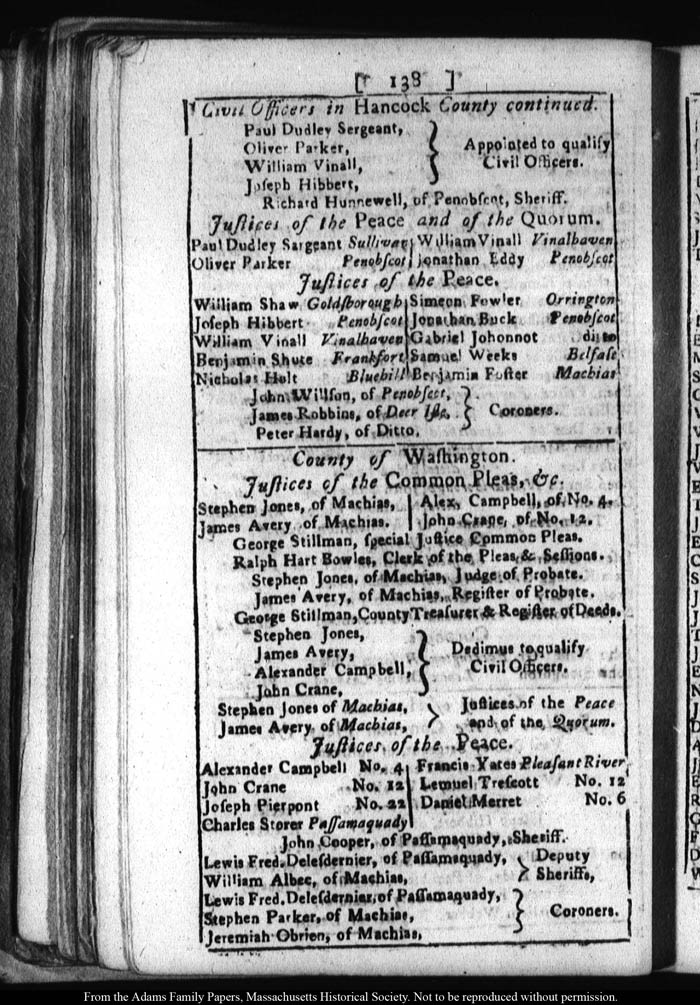 [ 138 ]
Civil Officers in Hancock County continued.
Paul Dudley Sergeant,
Oliver Parker,
William Vinall,
Joseph Hibbert,
} Appointed to qualify
Civil Officers.
Richard Hunnewell, of Penobſcot, Sheriff.
Juſtices of the Peace and of the Quorum.
Paul Dudley Sargeant Sullivan | William Vinall Vinalhaven
Oliver Parker Penobſcot | Jonathan Eddy Penobſcot
Juſtices of the Peace.
William Shaw Goldſborough | Simeon Fowler Orrington
Joſeph Hibbert Penobſcot | Jonathan Buck Penobſcot
William Vinall Vinalhaven | Gabriel Johonnot ditto
Benjamin Shute Frankfort | Samuel Weeks Belfaſt
Nicholas Holt Bluehill | Benjamin Foſter Machias
John Willſon, of Penobſcot,
James Robbins, of Deer Iſle,
Peter Hardy, of Ditto.
} Coroners.
County of Waſhington.
Juſtices of the Common Pleas, &c.
Stephen Jones, of Machias, | Alex. Campbell, of No. 4.
James Avery of Machias. | John Crane, of No. 12.
George Stillman, ſpecial Juſtice Common Pleas.
Ralph Hart Bowles, Clerk of the Pleas, & Seſſions.
Stephen Jones, of Machias, Judge of Probate.
James Avery, of Machias, Regiſter of Probate.
George Stillman, County Treaſurer & Regiſter of Deeds.
Stephen Jones,
James Avery,
Alexander Campbell,
John Crane,
} Dedimus to qualify
Civil Officers.
Stephen Jones of Machias,
James Avery of Machias,
} Juſtices of the Peace
and of the Quorum.
Juſtices of the Peace.
Alexander Campbell No. 4 | Francis Yates Pleaſant River
John Crane No. 12 | Lemuel Treſcott No. 12
Joſeph Pierpont No. 22 | Daniel Merret No. 6
Charles Storer Paſſamaquady
John Cooper, of Paſſamaquady, Sheriff.
Lewis Fred. Deleſdernier, of Paſſamaquady,
William Albee, of Machias,
} Deputy
Sheriffs,
Lewis Fred. Deleſdernier, of Paſſamaquady,
Stephen Parker, of Machias,
Jeremiah Obrien, of Machias,
} Coroners.
From the Adams Family Papers, Massachusetts Historical Society. Not to be reproduced without permission.